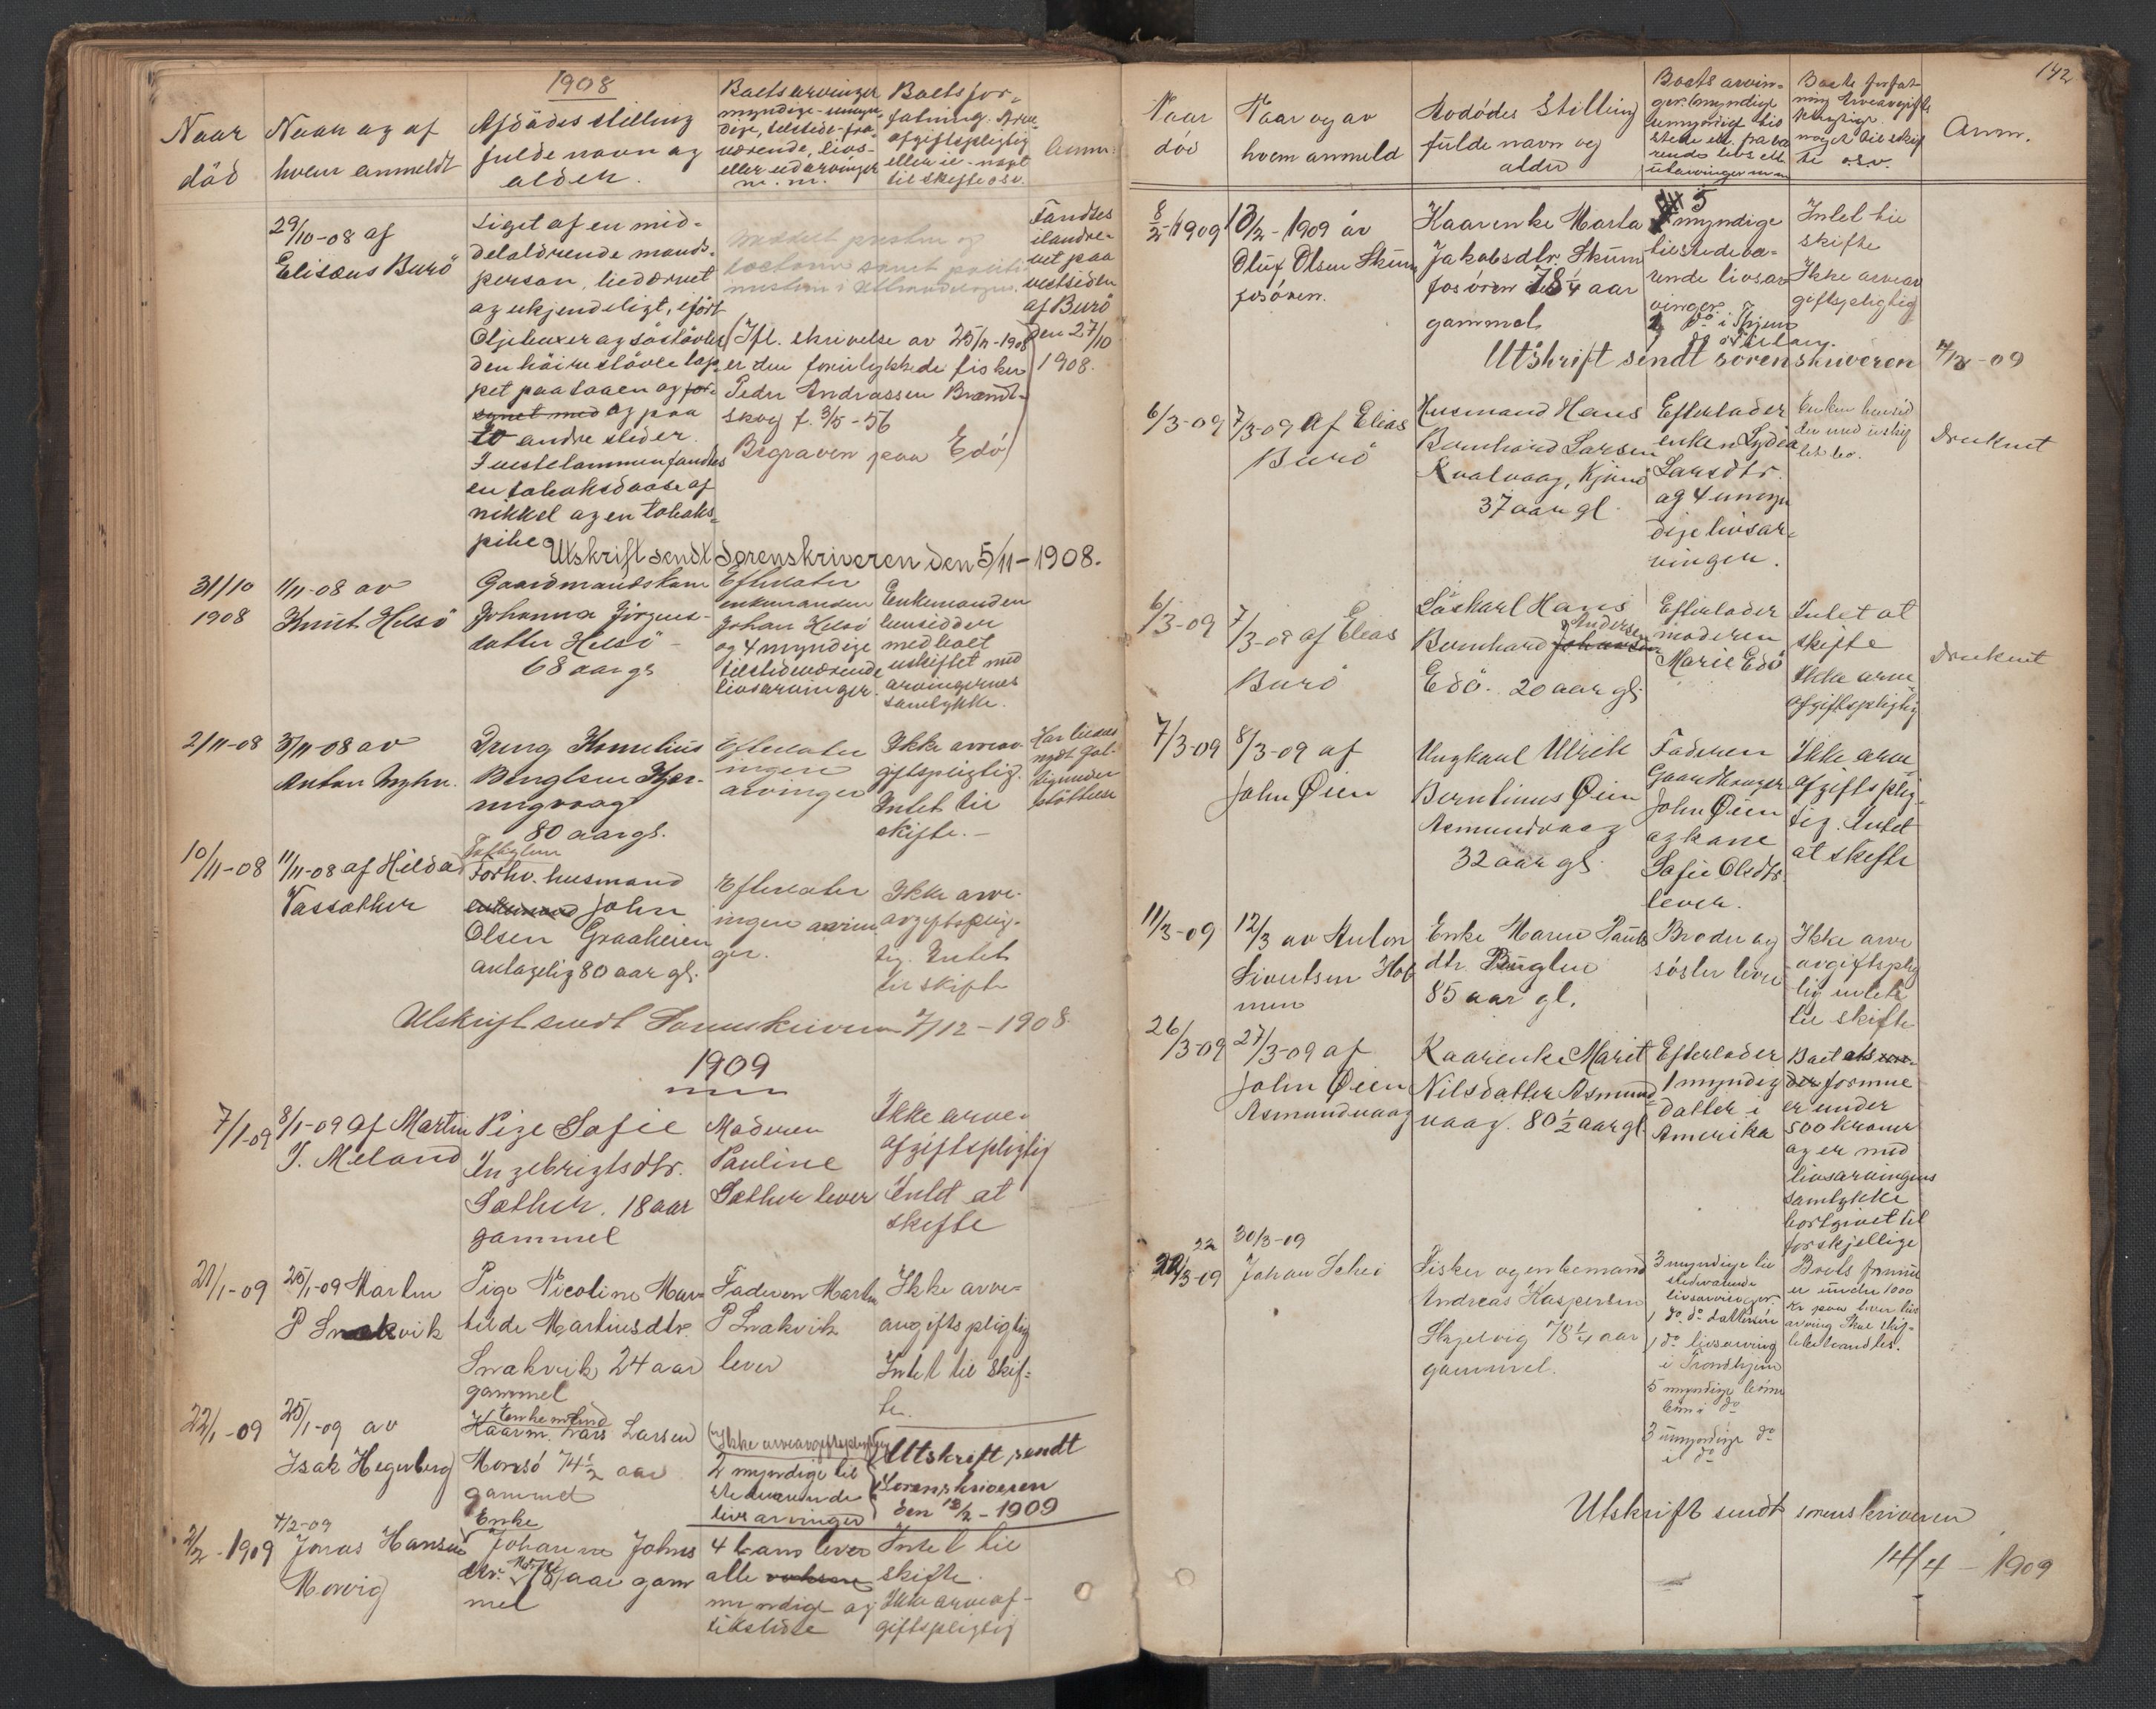 1908
Naar
död
Naar og af
hvem anmeldt
Afdödes stilling
fulde navn og
alder.
Boets arvinger
myndige - umyn-
dige, tilstede - fra-
værende, livs-
eller udarvinger
m. m.
Boets for-
fatning. Arve-
afgiftspligtig
eller ei - noget
til skifte osv.
Anm.
29/10-08 af
Eliseus Burö
Liget af en mid-
delaldrende mands-
person, lædervet
og ukjendeligt, iført
Oljebuxer og söstövler
den höire stövle lap-
pet paa taaen og for-
synet med og paa
to andre steder.
I vestelommen fandtes
en tobaksdaase af
nikkel og en tobaks-
pibe
(Ifl. skrivelse av 25/11-1908
er den forulykkede fisker
Peder Andreassen Brandt-
skog f. 3/5-56
Begraven paa Edö)
Fandtes
ilanddre-
vet paa
vestsiden
af Burö
den 27/10
1908.
Utskrift sendt Sorenskriveren den 5/11-1908.
31/10
1908
1/11-08 av
Knut Helsö
Gaardmandskone
Johanna Jörgens-
datter Helsö -
68 aar gl
Efterlater
enkemanden
Johan Helsö
og 4 myndige
tilstedeværende
livsarvinger.
Enkemanden
hensidder
med boet
uskiftet med
arvingernes
samtykke.
2/11-08
3/11-08 av
Anton Myhr.
Dreng Kornelius
Bengtsen Kjør-
ningvaag
80 aar gl.
Efterlater
ingen
arvinger
Ikke arveav-
giftspligtig.
Intet til
skifte. -
Har liedes
nydt fat-
tigunder
støttelse
10/11-08
11/11-08 af Hilda
Vassæther
Fattiglem
Forhv. husmand
enkemand John
Olsen Graaheien
antagelig 80 aar gl.
Efterlater
ingen arvin
ger.
Ikke arve-
avgiftsplig-
tig. Intet
til skifte
Utskrift sendt Sorenskriveren 7/12-1908.
1909
7/1-09
8/1-09 af Martin
J. Meland
Pige Sofie
Ingebrigtsdtr.
Sæther. 18 aar
gammel
Moderen
Pauline
Sæther lever
Ikke arve-
afgiftspligtig
Intet at
skifte
21/1-09
25/1-09 Martin
P Snekvik
Pige Nicoline Mar-
tilde Martinusdtr.
Snekvik 24 aar
gammel
Faderen Martin
P Snekvik
lever
Ikke arve-
avgiftspligtig
Intet til skif-
te.
22/1-09
25/1-09 av
Isak Hegerberg
Enkemand
Kaarm. Lars Larsen
Morsö 74 1/2 aar
gammel
(Ikke arveavgiftspligtig
2 myndige til
stedeværende
livsarvinger
Utskrift sendt
Sorenskriveren
den 12/2-1909
2/2-1909
4/2-09
Jonas Hansen
Morvig
Enke
Johanne Johns
dtr. 78 aar gam
mel
4 barn lever
alle voksne
myndige og
tilstede
Intet til
skifte.
Ikke arveaf-
giftspligtig
142
Naar
død
Naar og av
hvem anmeld
Avdödes Stilling
fulde navn og
alder
Boets arvin-
ger. Myndige
umyndige til
stede ell. fravæ
rende livs ell
utarvinger m m
Boets forfat-
ning Arveavgifts
pligtig.
noget til skif
te o.s.v.
Anm.
8/2-1909
13/2-1909 av
Oluf Olsen Skum
fosören.
Kaarenke Marta
Jakobsdtr. Skum
fosören 78 1/4 aar
gammel
5
myndige
tilstedevæ-
rende livsar
vinger.
Intet til
skifte
Ikke arveav
giftspligtig
Utskrift sendt sorenskriveren
6/3-09
7/3-09 af Elias
Burö
Husmand Hans
Bernhard Larsen
Kvalvaag,
37 aar gl.
Efterlader
enken Lydia
Larsdtr.
og 4 umyn
dige livsar-
vinger.
Enken hensid
der med uskif
tet bo.
Druknet
6/3-09
7/3-09 af Elias
Burö
Löskarl Hans
Andersen
Bernhard Johansen
Edö. 20 aar gl.
Efterlader
moderen
Marie Edö
Intet at
skifte
Ikke arve
afgiftspligtig
Druknet
7/3-09
8/3-09 af
John Øien
Ungkarl Ulrik
Berntinus Øien
Asmundvaag
32 aar gl.
Faderen
Gaardbruger
John Øien
og kone
Sofie Olsdtr.
lever.
Ikke arve
afgiftsplig-
tig. Intet
at skifte
11/3-09
12/3 av Anton
Sivertsen Hol
men
Enke Maren Pauls
dtr.
85 aar gl.
Broder og
søster lever
Ikke arve
avgiftsplig
tig intet
til skifte
26/3-09
27/3-09 af
John Øien
Asmundvaag
Kaarenke Marit
Nilsdatter Asmund-
vaag. 80 1/2 aar gl
Efterlader
1 myndig
datter i
Amerika
Boet ats un-
der formue
er under
500 kroner
og er med
livsarvingens
samtykke
bortgivet til
forskjellige
22
22/3-09
30/3-09
Johan Schei
Fisker og enkemand
Andreas Kaspersen
Skjelvig 78 1/4 aar
gammel.
3 myndige til
stedeværende
livsarvinger
1 do. do datter
1 do livsarving
i Trondhjem
5 myndige börne
börn i do
3 umyndige do
i do
Boets formue
er under 1000
kr paa hver livs
arving Skal skif-
tebehandles.
Utskrift sendt sorenskriveren
14/4-1909